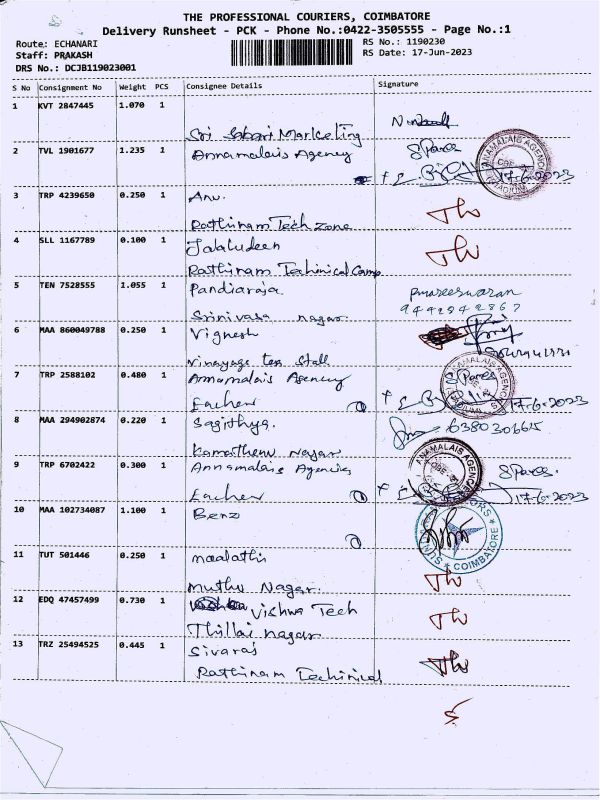 THE PROFESSIONAL COURIERS, COIMBATORE
Delivery Runsheet - PCK - Phone No.:0422-3505555 - Page No.:1
Route: ECHANARI
Staff: PRAKASH
DRS No.: DCJB119023001
RS No.: 1190230
RS Date: 17-Jun-2023
S No Consignment No Weight PCS Consignee Details Signature
1 KVT 2847445 1.070 1
Sri Sabari Marketing
2 TVL 1901677 1.235 1 Annamalais Agency S Pares
17-6-2023
3 TRP 4239650 0.250 1 Anu.
Rathinam Tech zone
4 SLL 1167789 0.100 1 Jalaludeen
Rathinam Techinical Camp
5 TEN 7528555 1.055 1 Pandiaraja
Srinivasa nagar.
6 MAA 860049788 0.250 1 Vignesh
Vinayaga tea stall
7 TRP 2588102 0.480 1 Annamalais Agency S Pares
Eachen 17-6-2023
8 MAA 294902874 0.220 1 Sagithya.
Kamathenu Nagar
9 TRP 6702422 0.300 1 Annamalais Agencies S Pares.
Eachen 17-6-2023
10 MAA 102734087 1.100 1 Benz
COIMBATORE
11 TUT 501446 0.250 1 maalathi
Muthu Nagar.
12 EDQ 47457499 0.730 1 Vishwa Tech
Thillai nagar
13 TRZ 25494525 0.445 1 Sivaraj
Rathinam Techinical